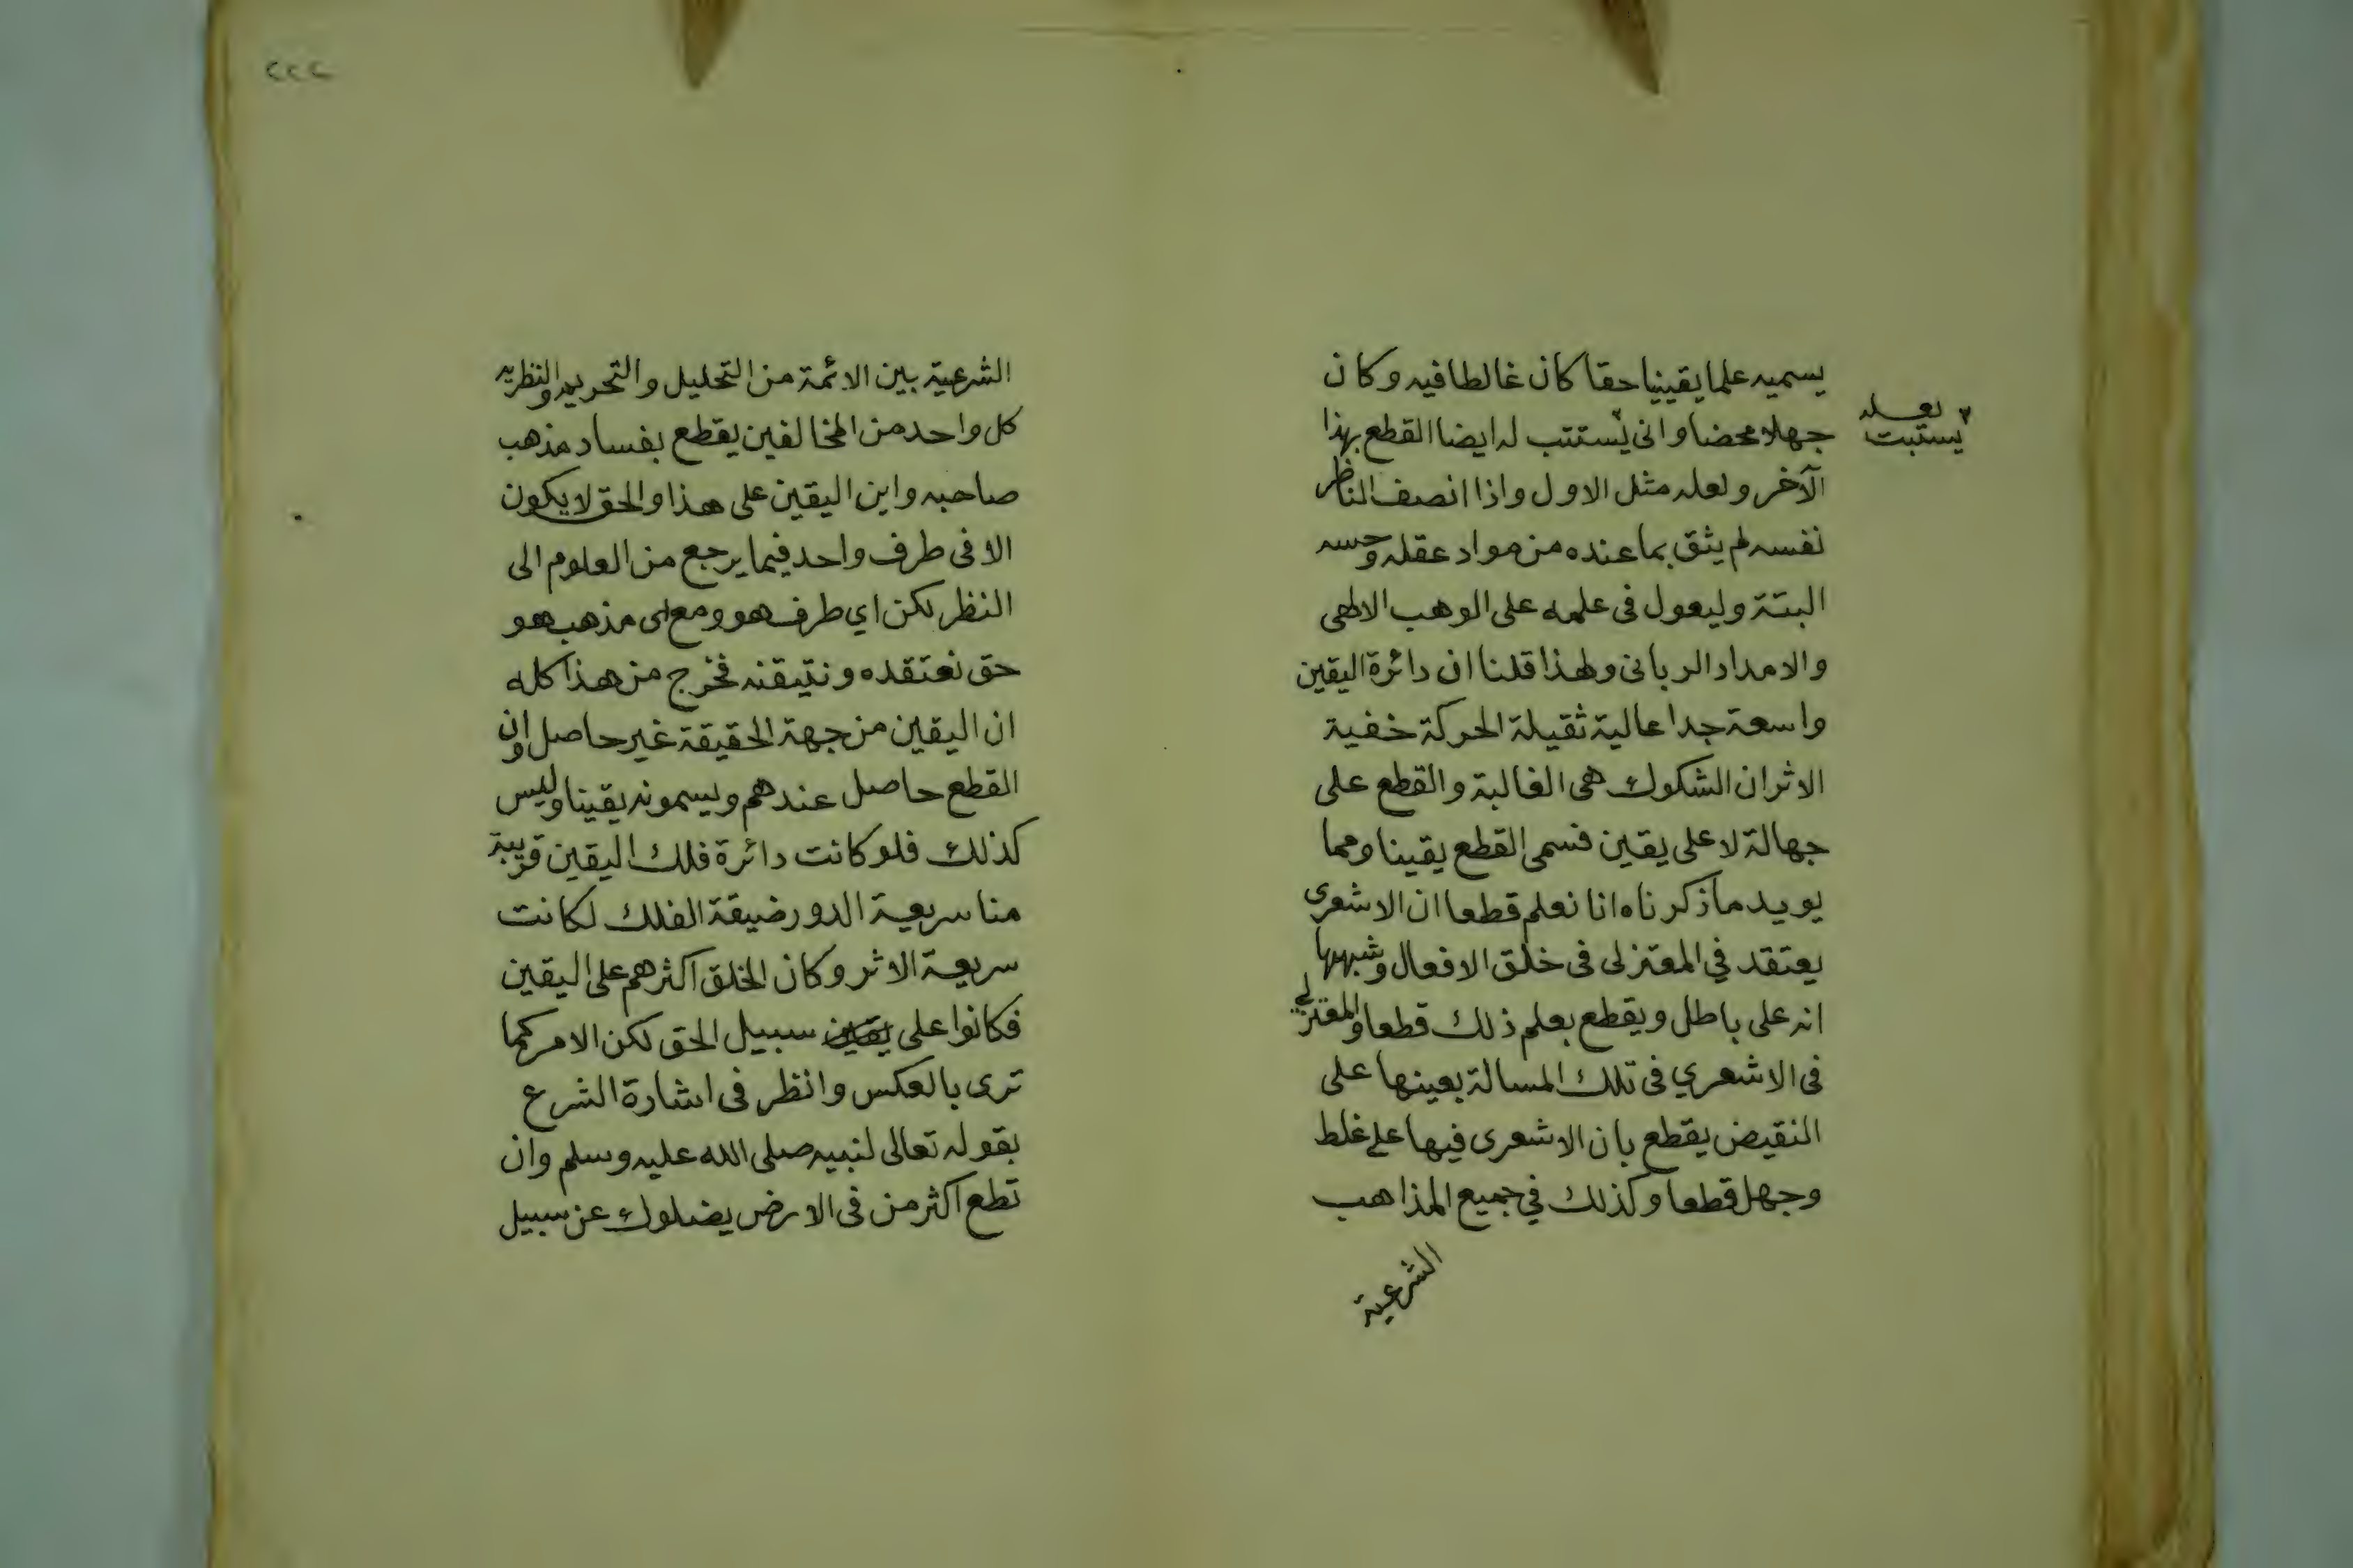 يسميه علما يقينيا حقا كان غالطا فيه وكان
جهلا محضا وانى يستتب له ايضا القطع بهذا
لعله
يستثبت
الآخر ولعله مثل الاول واذا انصف الناظر
نفسه لم يثق بما عنده من مواد عقله وحسه
البتة وليعول فى علمه على الوهب الالهى
والامداد الربانى ولهذا قلنا ان دائرة اليقين
واسعة جدا عالية ثقيلة الحركة خفية
الاثر ان الشكوك هى الغالبة والقطع على
جهالة لا على يقين فسمى القطع يقينا ومما
يويد ما ذكرناه انا نعلم قطعا ان الاشعرى
يعتقد في المعتزلى فى خلق الافعال وشبهها
انه على باطل ويقطع بعلم ذلك قطعا والمعتزلي
فى الاشعري فى تلك المسالة بعينها على
النقيض يقطع بان الاشعرى فيها على غلط
وجهل قطعا وكذلك في جميع المذاهب
الشرعية
٢٢٢
الشرعية بين الائمة من التحليل والتحريم والنظرية
كل واحد من المخالفين يقطع بفساد مذهب
صاحبه واين اليقين على هذا والحق لا يكون
الا فى طرف واحد فيما يرجع من العلوم الى
النظر لكن اي طرف هو ومع اى مذهب هو
حق نعتقده ونتيقنه فخرج من هذا كله
ان اليقين من جهة الحقيقة غير حاصل وان
القطع حاصل عندهم ويسمونه يقينا وليس
كذلك فلو كانت دائرة فلك اليقين قريبة
منا سريعة الدور ضيقة الفلك لكانت
سريعة الاثر وكان الخلق اكثرهم على اليقين
فكانوا على يقين سبيل الحق لكن الامر كما
ترى بالعكس وانظر فى اشارة الشرع
بقوله تعالى لنبيه صلى الله عليه وسلم وان
تطع اكثر من فى الارض يضلوك عن سبيل